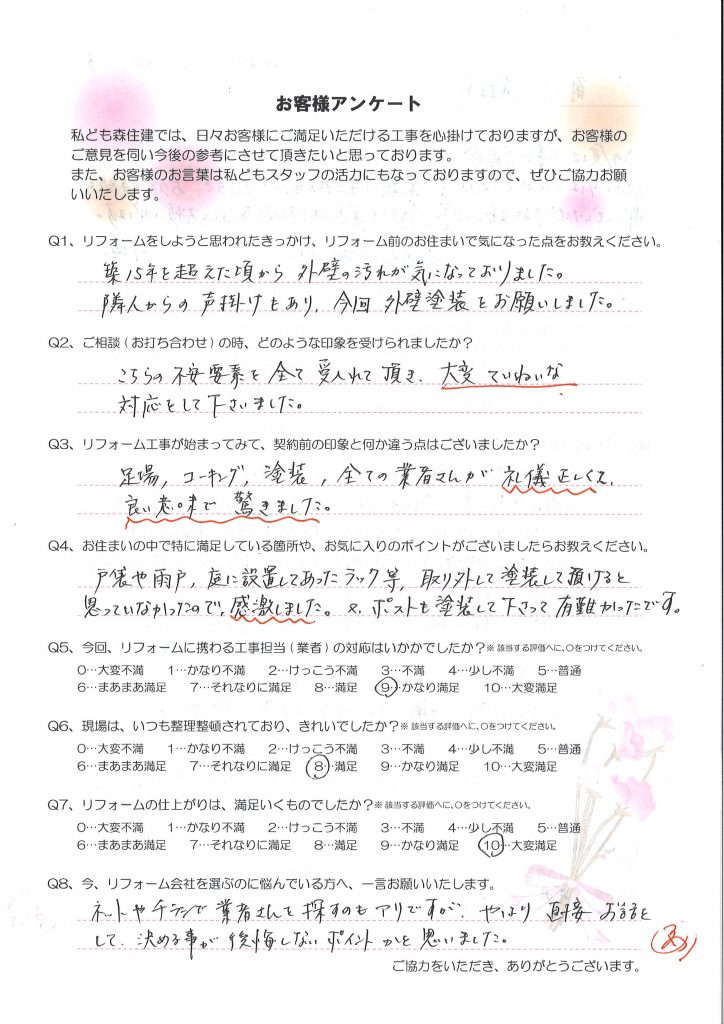 お客様アンケート
私ども森住建では、日々お客様にご満足いただける工事を心掛けておりますが、お客様の
ご意見を伺い今後の参考にさせて頂きたいと思っております。
また、お客様のお言葉は私どもスタッフの活力にもなっておりますので、ぜひご協力お願
いいたします。
Q1、リフォームをしようと思われたきっかけ、リフォーム前のお住まいで気になった点をお教えください。
築15年を超えた頃から 外壁の汚れが気になっておりました。
隣人からの声掛けもあり、今回 外壁塗装をお願いしました。
Q2、ご相談(お打ち合わせ)の時、どのような印象を受けられましたか?
こちらの不安要素を全て受入れて頂き、大変 ていねいな
対応をして下さいました。
Q3、リフォーム工事が始まってみて、契約前の印象と何か違う点はございましたか?
足場, コーキング, 塗装, 全ての業者さんが 礼儀正しくて、
良い意味で 驚きました。
Q4、お住まいの中で特に満足している箇所や、お気に入りのポイントがございましたらお教えください。
戸袋や雨戸, 庭に設置してあったラック等, 取り外して塗装して頂けると
思っていなかったので、感激しました。又、ポストも塗装して下さって有難かったです。
Q5、今回、リフォームに携わる工事担当(業者)の対応はいかがでしたか?※該当する評価へに、○をつけてください。
0…大変不満 1…かなり不満 2…けっこう不満 3…不満 4…少し不満 5…普通
6…まあまあ満足 7…それなりに満足 8…満足 9…かなり満足 10…大変満足
Q6、現場は、いつも整理整頓されており、きれいでしたか?※該当する評価へに、○をつけてください。
0…大変不満 1…かなり不満 2…けっこう不満 3…不満 4…少し不満 5…普通
6…まあまあ満足 7…それなりに満足 8…満足 9…かなり満足 10…大変満足
Q7、リフォームの仕上がりは、満足いくものでしたか?※該当する評価へに、○をつけてください。
0…大変不満 1…かなり不満 2…けっこう不満 3…不満 4…少し不満 5…普通
6…まあまあ満足 7…それなりに満足 8…満足 9…かなり満足 10…大変満足
Q8、今、リフォーム会社を選ぶのに悩んでいる方へ、一言お願いいたします。
ネットやチラシで業者さんを探すのもアリですが、やはり 直接 お話を
して、決める事が後悔しないポイントかと思いました。
ご協力をいただき、ありがとうございます。